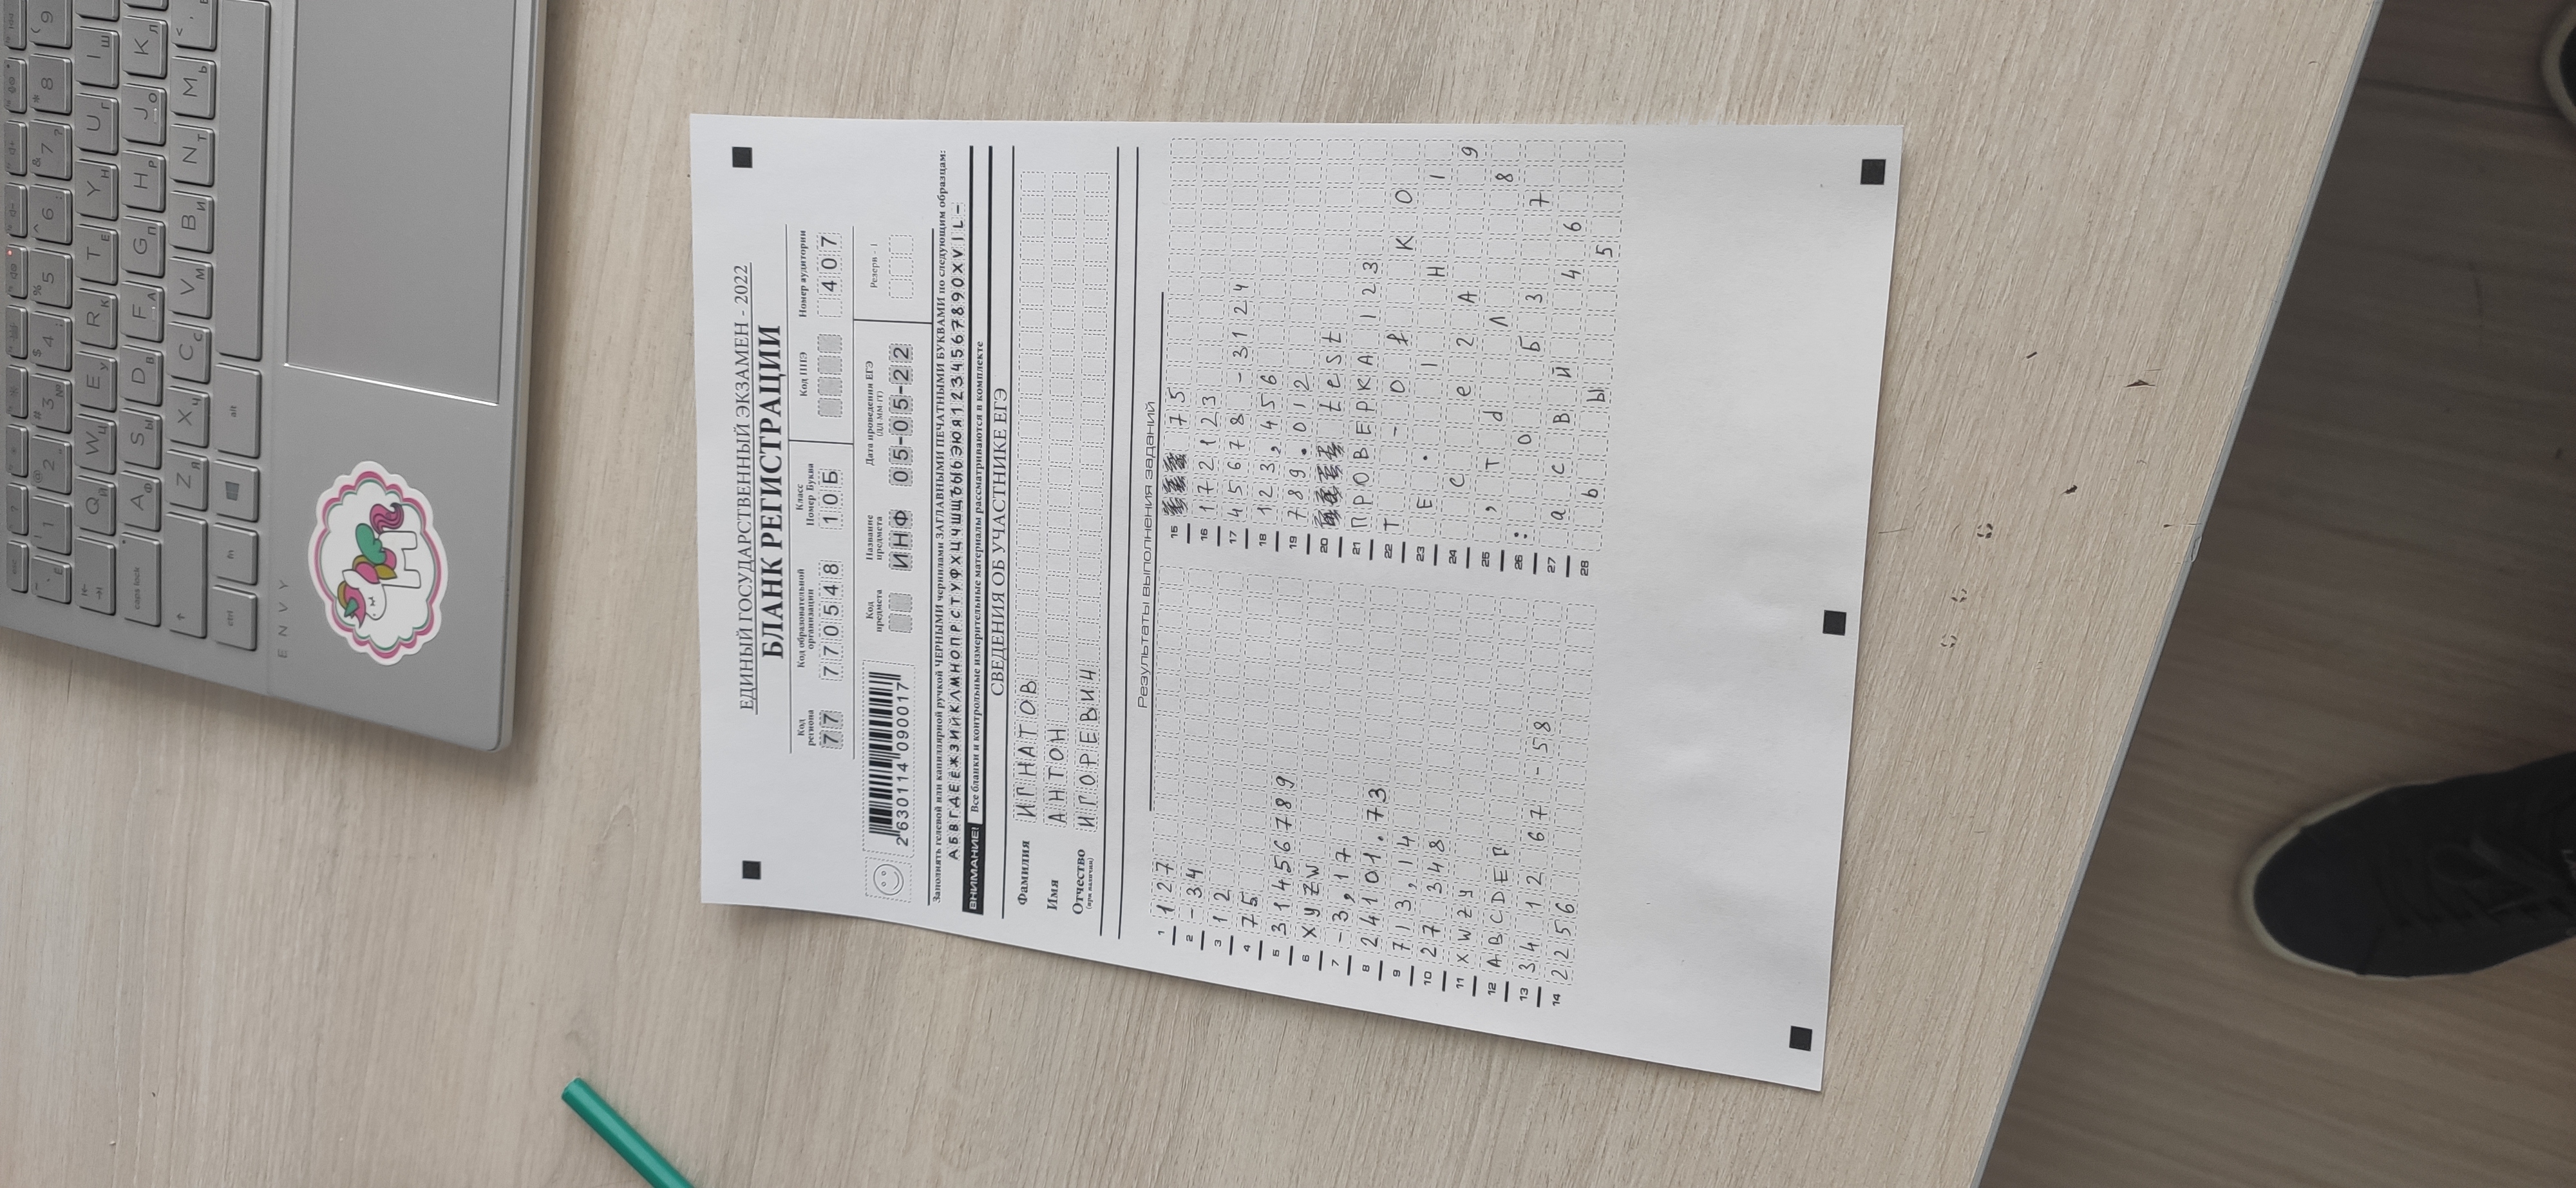 esc ? * * 
~ ` Ё ! 1 @ 2 " # 3 № $ 4 ; % 5 ^ 6 : & 7 ? * 8 ( 9
Q Й W Ц E У R К T Е Y Н U Г I Ш
caps lock A Ф S Ы D В F А G П H Р J О K Л
Z Я X Ч C С V М B И N Т M Ь <
ctrl fn alt
ENVY
ЕДИНЫЙ ГОСУДАРСТВЕННЫЙ ЭКЗАМЕН - 2022
БЛАНК РЕГИСТРАЦИИ
Код региона Код образовательной организации Класс Номер Буква Код ППЭ Номер аудитории
77 770548 10Б 407
Код предмета Название предмета Дата проведения ЕГЭ (ДД-ММ-ГГ) Резерв - 1
2630114 090017 ИНФ 05-05-22
Заполнять гелевой или капиллярной ручкой ЧЕРНЫМИ чернилами ЗАГЛАВНЫМИ ПЕЧАТНЫМИ БУКВАМИ по следующим образцам:
АБВГДЕЁЖЗИЙКЛМНОПРСТУФХЦЧШЩЪЫЬЭЮЯ1234567890XVIL-
ВНИМАНИЕ! Все бланки и контрольные измерительные материалы рассматриваются в комплекте
СВЕДЕНИЯ ОБ УЧАСТНИКЕ ЕГЭ
Фамилия ИГНАТОВ
Имя АНТОН
Отчество ИГОРЕВИЧ
(при наличии)
Результаты выполнения заданий
1 127
2 -34
3 12
4 75
5 31456789
6 XYZW
7 -3,17
8 24101.73
9 713,14
10 27 348
11 XWZY
12 ABCDEF
13 34 12 67 -58
14 2256
15 75
16 172123
17 45678 -3124
18 123,456
19 789.012
20 test
21 ПРОВЕРКА 123
22 Т - О f К О
23 Е . l Н 1
24 С е 2 А 9
25 , Т d Л 8
26 : О Б 3 7
27 а С В Й 4 6
28 Ь Ы 5